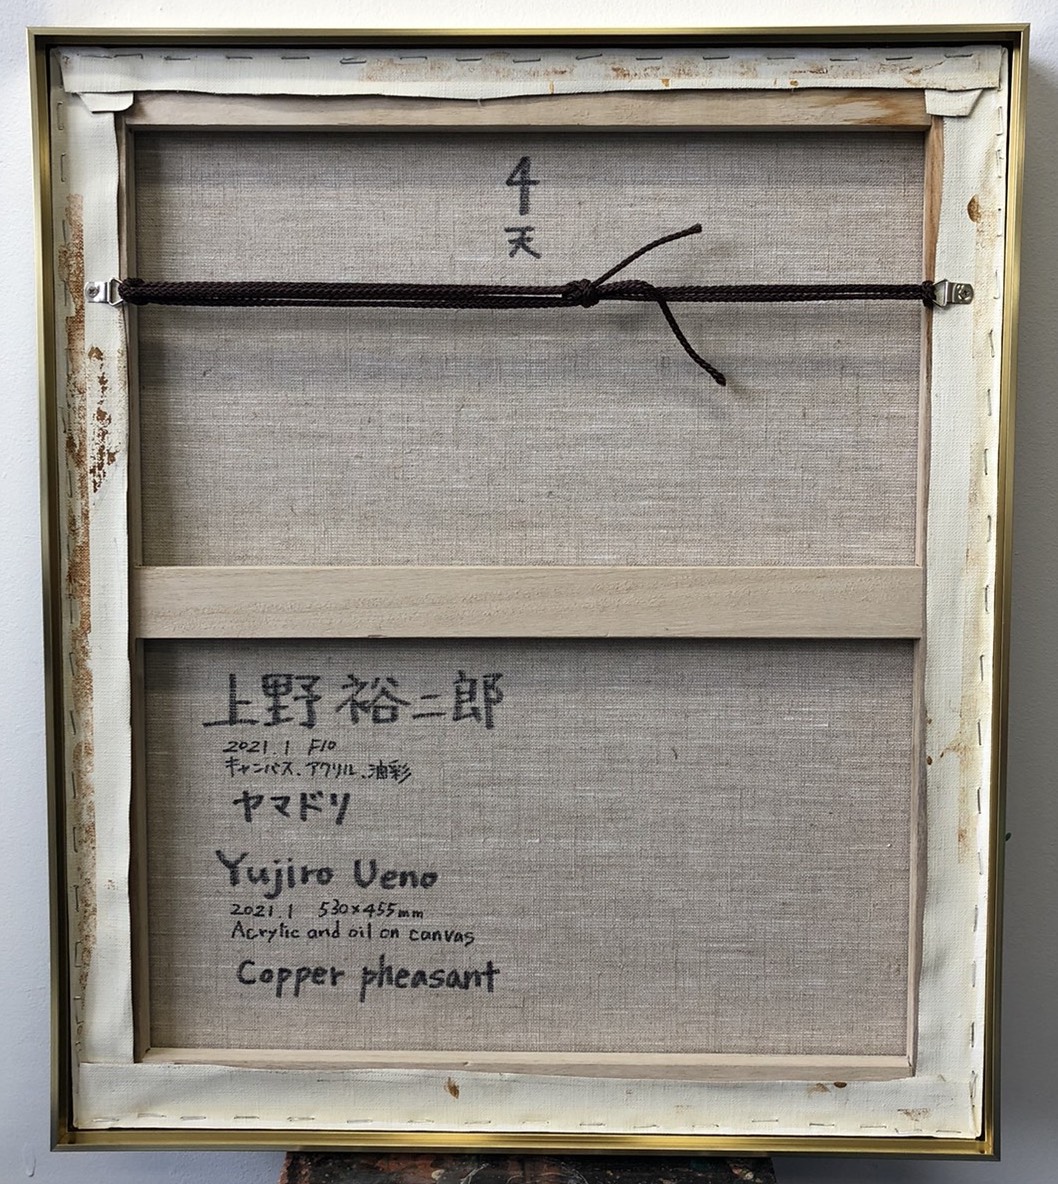 4
天
上野 裕二郎
2021.1 F10
キャンバス、アクリル、油彩
ヤマドリ
Yujiro Ueno
2021.1 530×455mm
Acrylic and oil on canvas
Copper pheasant